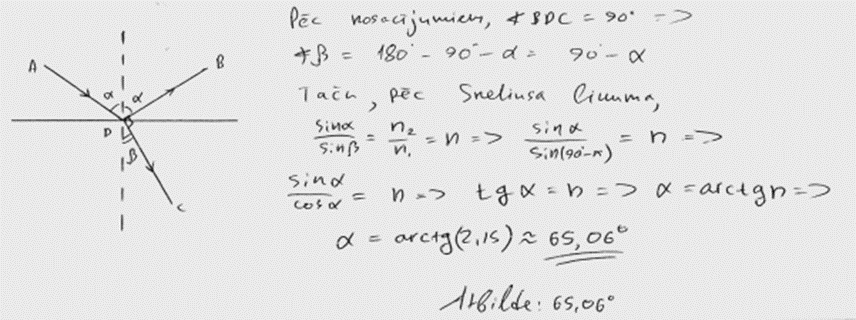 Pēc nosacījumiem, ∢BDC = 90° =>
∢β = 180° - 90° - α = 90° - α
Taču, pēc Sneliusa likuma,
sinα/sinβ = n₂/n₁ = n => sinα/sin(90-α) = n =>
sinα/cosα = n => tgα = n => α = arctgn =>
α = arctg(2,15) ≈ 65,06°
Atbilde: 65,06°
A
B
α
α
D
β
C